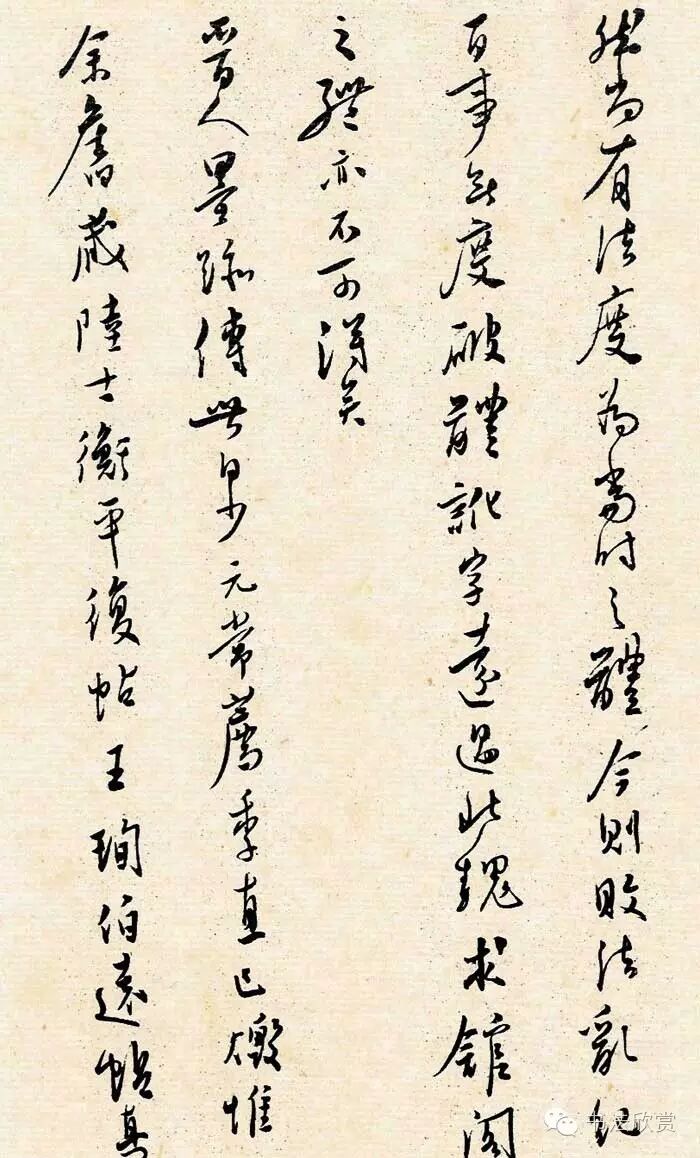 然尚有法度為當時之體今則敗法亂紀
百事無度破體訛字遠過北魏求館閣
之體亦不可得矣
晉人墨跡傳世最少元常薦季直已燬惟
余舊藏陸士衡平復帖王珣伯遠帖真
书法欣赏